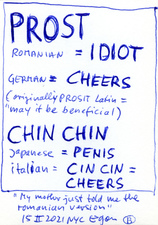 PROST
ROMANIAN = IDIOT
GERMAN = CHEERS
(originally PROSIT Latin =
"may it be beneficial)
CHIN CHIN
Japanese = PENIS
italian = CIN CIN =
CHEERS
* "My mother just told me the
romanian version"
15 II 2021 NYC Egon